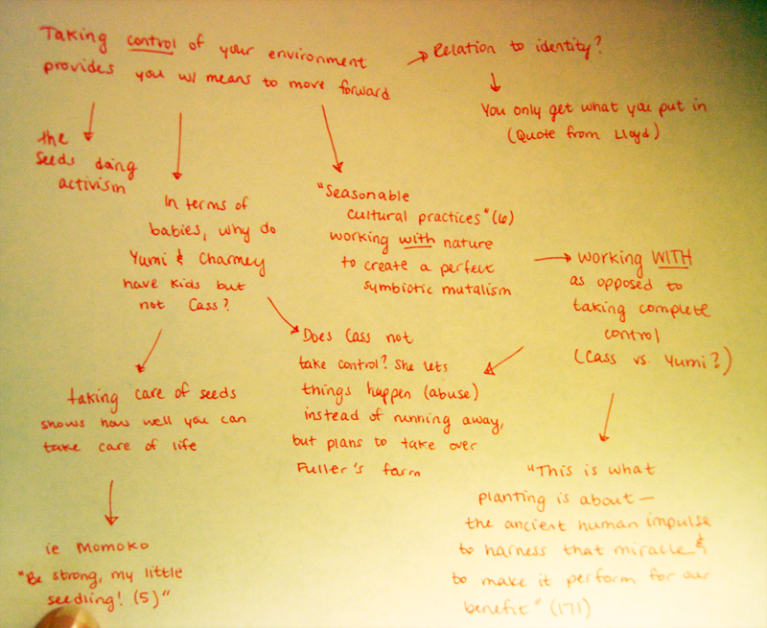 Taking control of your environment
provides you w/ means to move forward
Relation to identity?
You only get what you put in
(Quote from Lloyd)
the
Seeds doing
activism
In terms of
babies, why do
Yumi & Charmey
have kids but
not Cass?
"Seasonable
cultural practices" (6)
working with nature
to create a perfect
symbiotic mutalism
working WITH
as opposed to
taking complete
control
(Cass vs. Yumi?)
Does Cass not
take control? She lets
things happen (abuse)
instead of running away,
but plans to take over
Fuller's farm
taking care of seeds
shows how well you can
take care of life
ie Momoko
"Be strong, my little
seedling! (5)"
"This is what
planting is about —
the ancient human impulse
to harness that miracle &
to make it perform for our
benefit" (171)